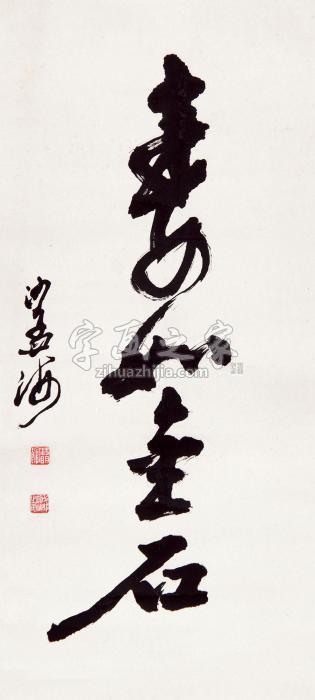 壽如金石
沙孟海
字画之家
zihuazhijia.com